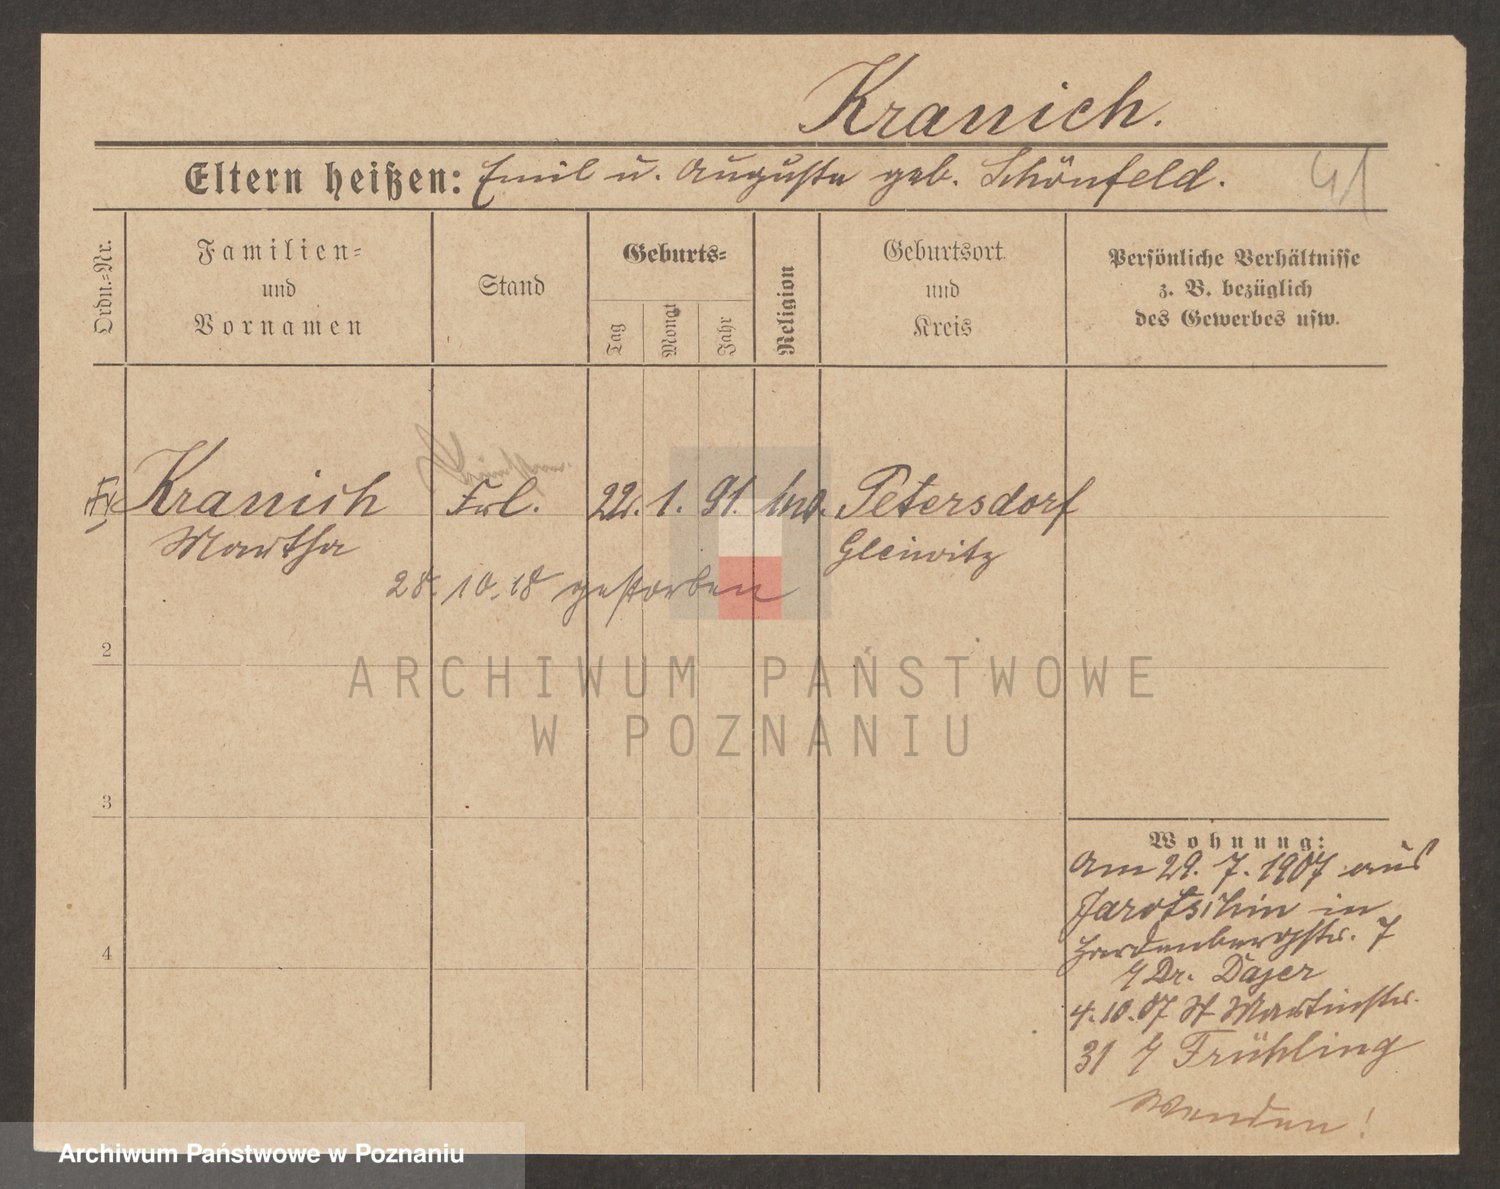 Kranich.
Eltern heißen: Emil u. Auguste geb. Schönfeld.
41
Ordn.=Nr.
Familien=
und
Vornamen
Stand
Geburts=
Tag
Monat
Jahr
Religion
Geburtsort
und
Kreis
Persönliche Verhältnisse
z. B. bezüglich
des Gewerbes usw.
Kranich Frl. 22. 1. 91. Petersdorf
Martha Gleiwitz
28. 10. 18 gestorben
2
ARCHIWUM PAŃSTWOWE
W POZNANIU
3
Wohnung:
Am 29. 7. 1907 aus
Jarotschin in
Hardenbergstr. 7
4
Dr.
4. 10. 07 St Martinstr.
31 Frühling
Wenden!
Archiwum Państwowe w Poznaniu